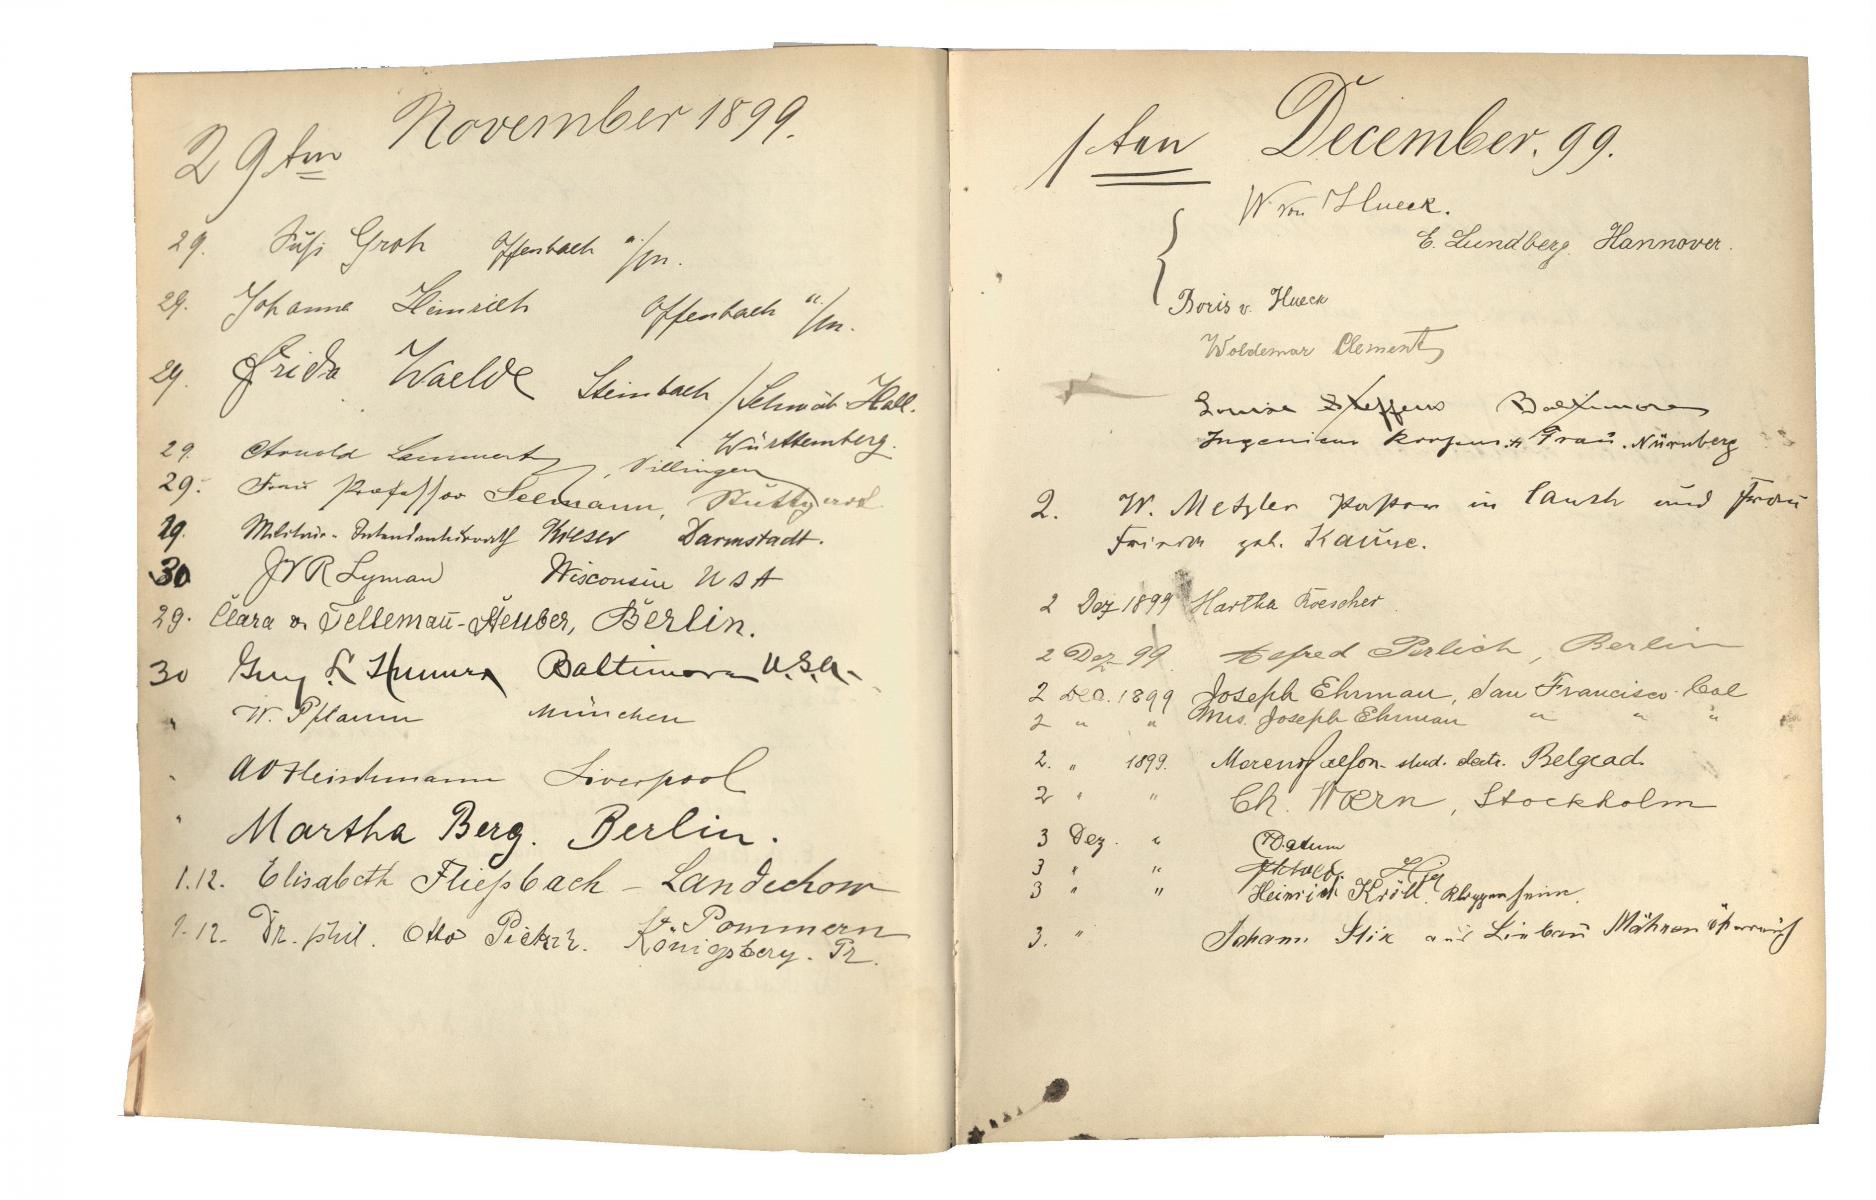 29ten November 1899.
29. Groh Offenbach a/m.
29. Johanna Heinrich Offenbach a/m.
29. Frida Waelde Steinbach / Schwäb. Hall.
Württemberg.
29. Arnold Lammertz, Villingen
29. Frau Professor Seemann, Stuttgart
29. Militär-Intendanturrath Darmstadt.
30 Lyman Wisconsin USA
29. Clara v. Berlin.
30 Guy L. Baltimore U.S.A.
" W. Pflaum München
" Liverpool
" Martha Berg. Berlin.
1.12. Elisabeth Fließbach – Landechow
Pommern
1.12. Dr. phil. Otto Königsberg. Pr.
1ten December. 99.
W. von Hueck.
E. Lundberg. Hannover.
Boris v. Hueck
Woldemar Clementz
Louise Steffens Baltimore
Ingenieur u. Frau. Nürnberg
2. W. Metzler Pastor in und Frau
geb. Kause.
2 Dez 1899 Hartha Koescher.
2 Dez 99. Alfred Perlich, Berlin
2 Dec. 1899 Joseph Ehrman, San Francisco. Cal
2 " " Mrs. Joseph Ehrman " " "
2. " 1899. stud. Belgrad.
2 " " Ch. Wærn, Stockholm
3 Dez. " Datum
3 " "
3 " " Heinrich Kröll.
3. " Johann Stix aus Liebau Mähren Österreich